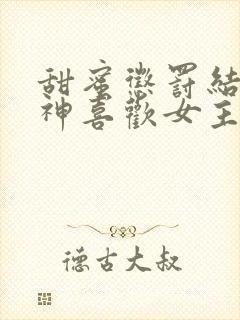 甜蜜懲罰結
神喜歡女主
德古大叔